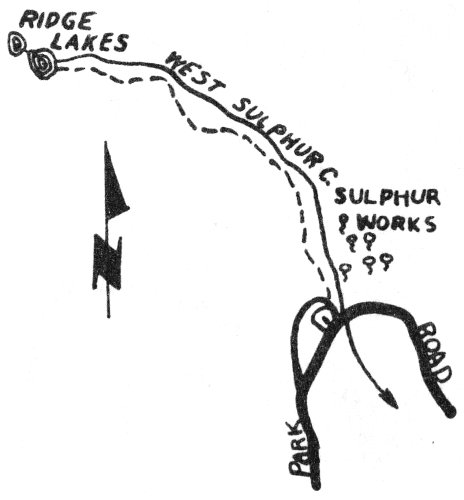 RIDGE
LAKES
WEST SULPHUR C.
SULPHUR
WORKS
N
PARK
ROAD